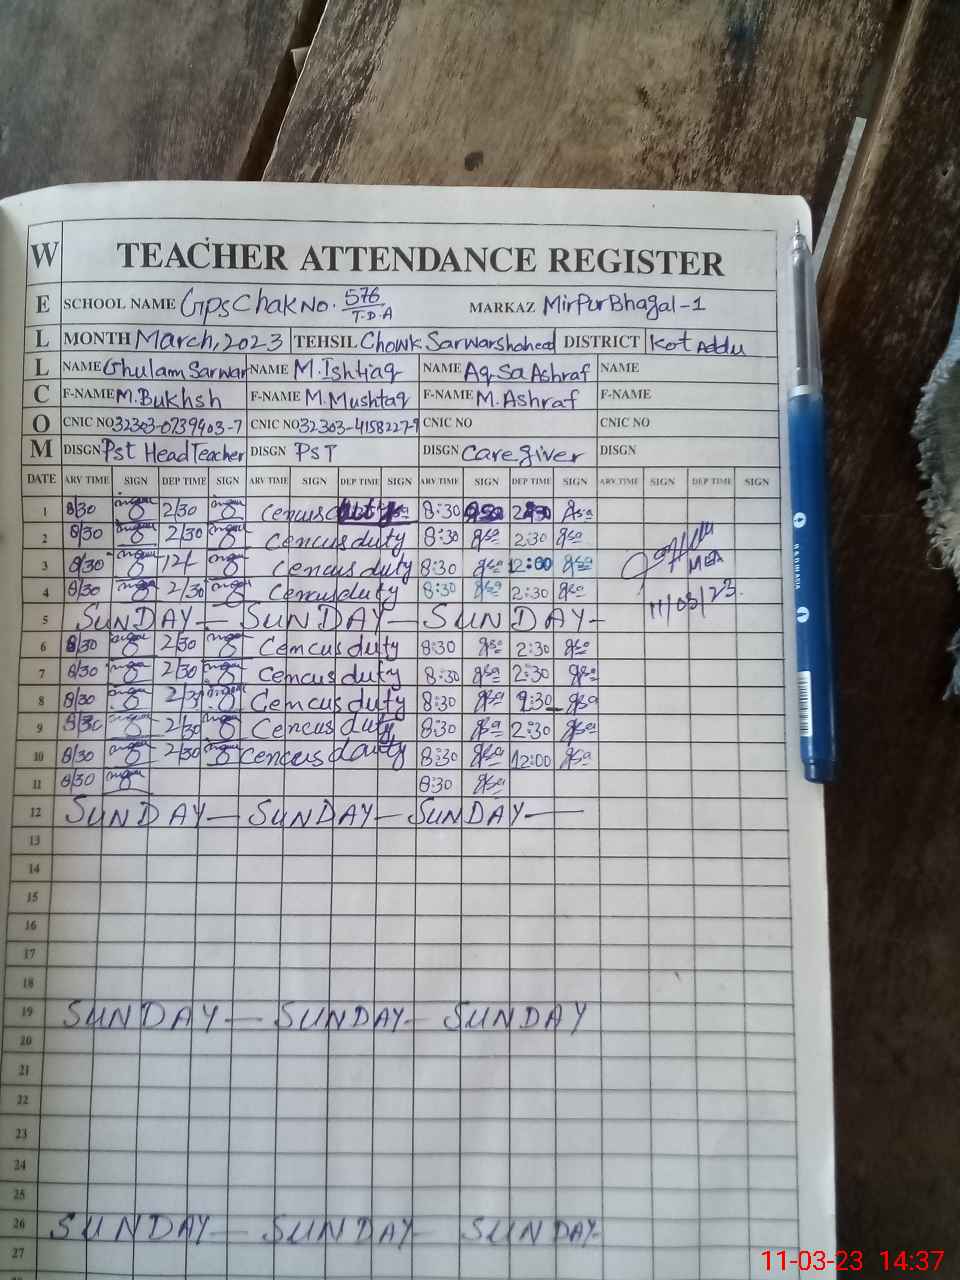 W TEACHER ATTENDANCE REGISTER
E SCHOOL NAME Gps Chak No. 576/T.D.A MARKAZ Mirpur Bhagal-1
L MONTH March, 2023 TEHSIL Chowk Sarwarshaheed DISTRICT Kot Addu
L NAME Ghulam Sarwar NAME M. Ishtiaq NAME Aqsa Ashraf NAME
C F-NAME M. Bukhsh F-NAME M. Mushtaq F-NAME M. Ashraf F-NAME
O CNIC NO 32303-0739403-7 CNIC NO 32303-4158227-9 CNIC NO CNIC NO
M DISGN Pst Head Teacher DISGN PST DISGN Care giver DISGN
DATE ARV TIME SIGN DEP TIME SIGN ARV TIME SIGN DEP TIME SIGN ARV TIME SIGN DEP TIME SIGN ARV TIME SIGN DEP TIME SIGN
1 8/30 2/30 Cencus 8:30
2 8/30 2/30 Cencus duty 8:30 2:30
3 8/30 12/ Cencus duty 8:30 12:00
MEA
4 8/30 2/30 Cencus duty 8:30 2:30
11/03/23.
5 SUNDAY — SUNDAY — SUNDAY —
6 8/30 2/30 Cencus duty 8:30 2:30
7 8/30 2/30 Cencus duty 8:30 2:30
8 8/30 2/30 Cencus duty 8:30
9 8/30 2/30 Cencus duty 8:30 2:30
10 8/30 2/30 Cencus dauty 8:30 12:00
11 8/30 8:30
12 SUNDAY — SUNDAY — SUNDAY —
13
14
15
16
17
18
19 SUNDAY — SUNDAY — SUNDAY
20
21
22
23
24
25
26 SUNDAY — SUNDAY — SUNDAY-
27
11-03-23 14:37